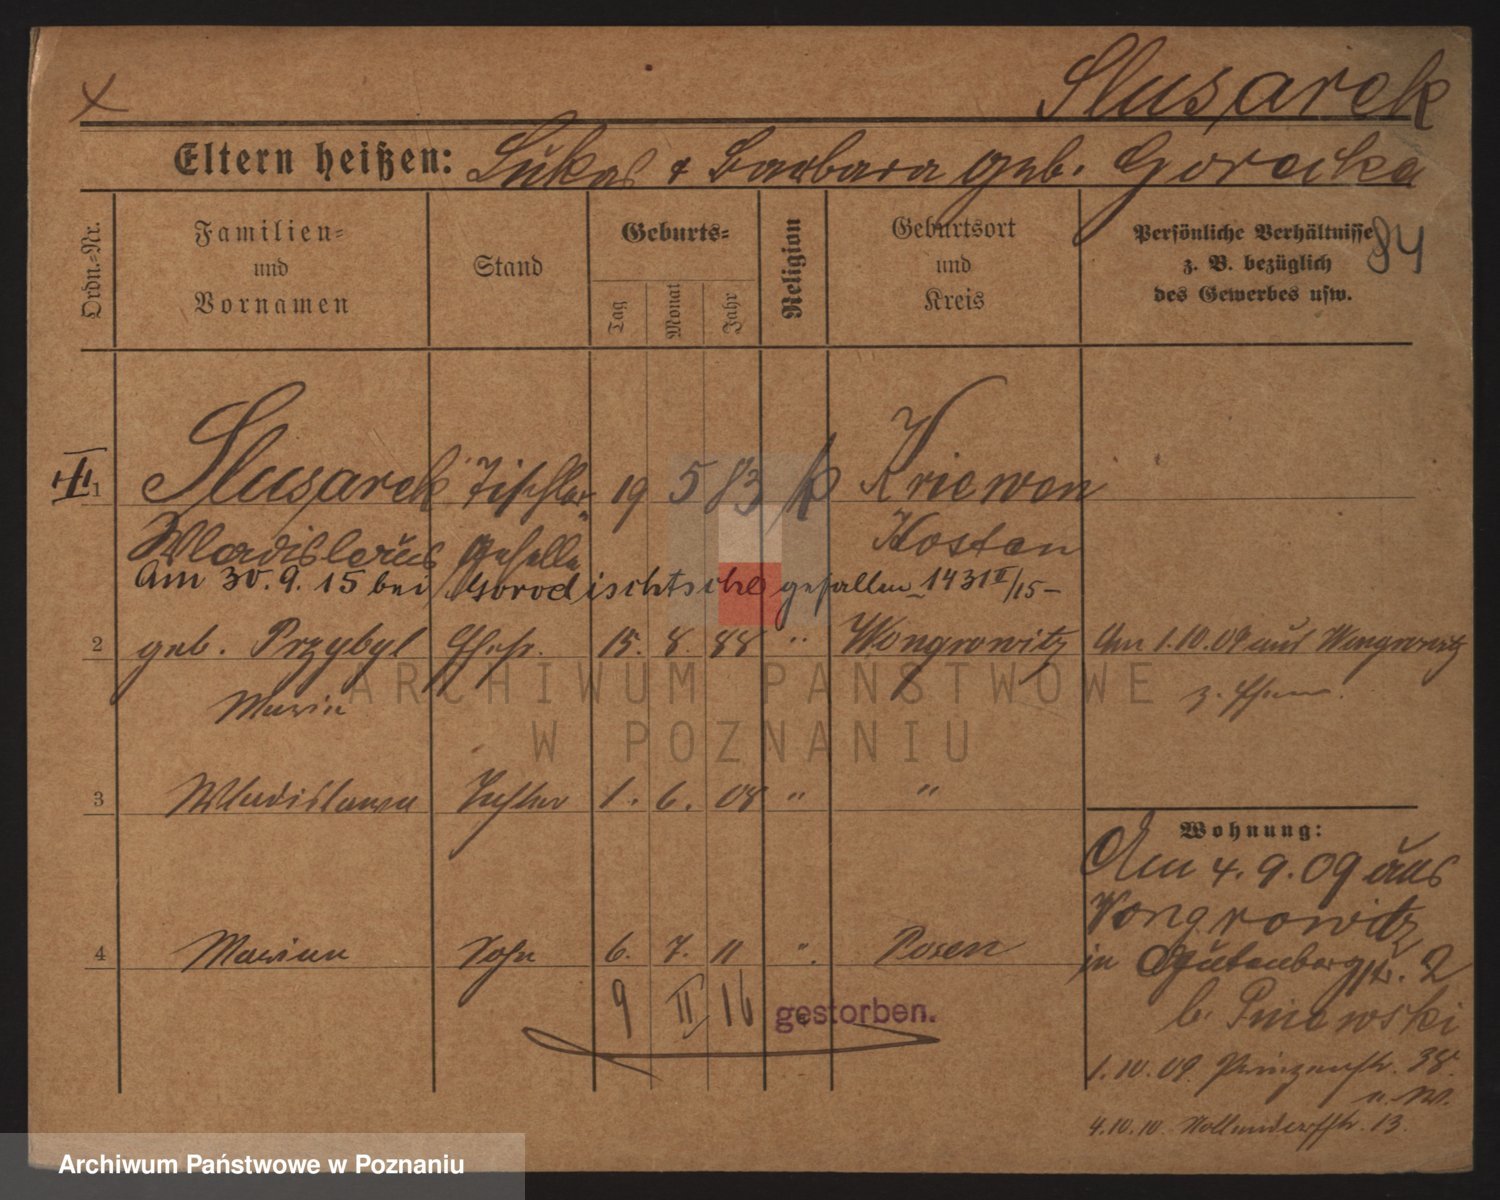 Slusarek
Eltern heißen: Lukas & Barbara geb. Gorecka
84
Ordn.-Nr.
Familien- und Vornamen
Stand
Geburts-
Tag
Monat
Jahr
Religion
Geburtsort und Kreis
Persönliche Verhältnisse z. B. bezüglich des Gewerbes usw.
1 Slusarek Tischler 19 5 83 k Kriewen
Wladislaus Geselle Kosten
Am 30.9.15 bei Gorodischtsche gefallen 1431 II/15
2 geb. Przybyl Ehefr. 15. 8. 88 " Wongrowitz Am 1.10.09 aus Wongrowitz
Maria z. Ehem.
3 Wladislawa Tochter 1. 6. 08 " "
Wohnung:
Am 4.9.09 aus
Wongrowitz
4 Marian Sohn 6. 7. 11 " Posen
in Gutenbergstr. 2
9 II 16 gestorben.
b. Pniewski
1.10.09 Prinzenstr. 38.
a. W.
4.10.10 Hollendorffstr. 13.
ARCHIWUM PAŃSTWOWE
W POZNANIU
Archiwum Państwowe w Poznaniu